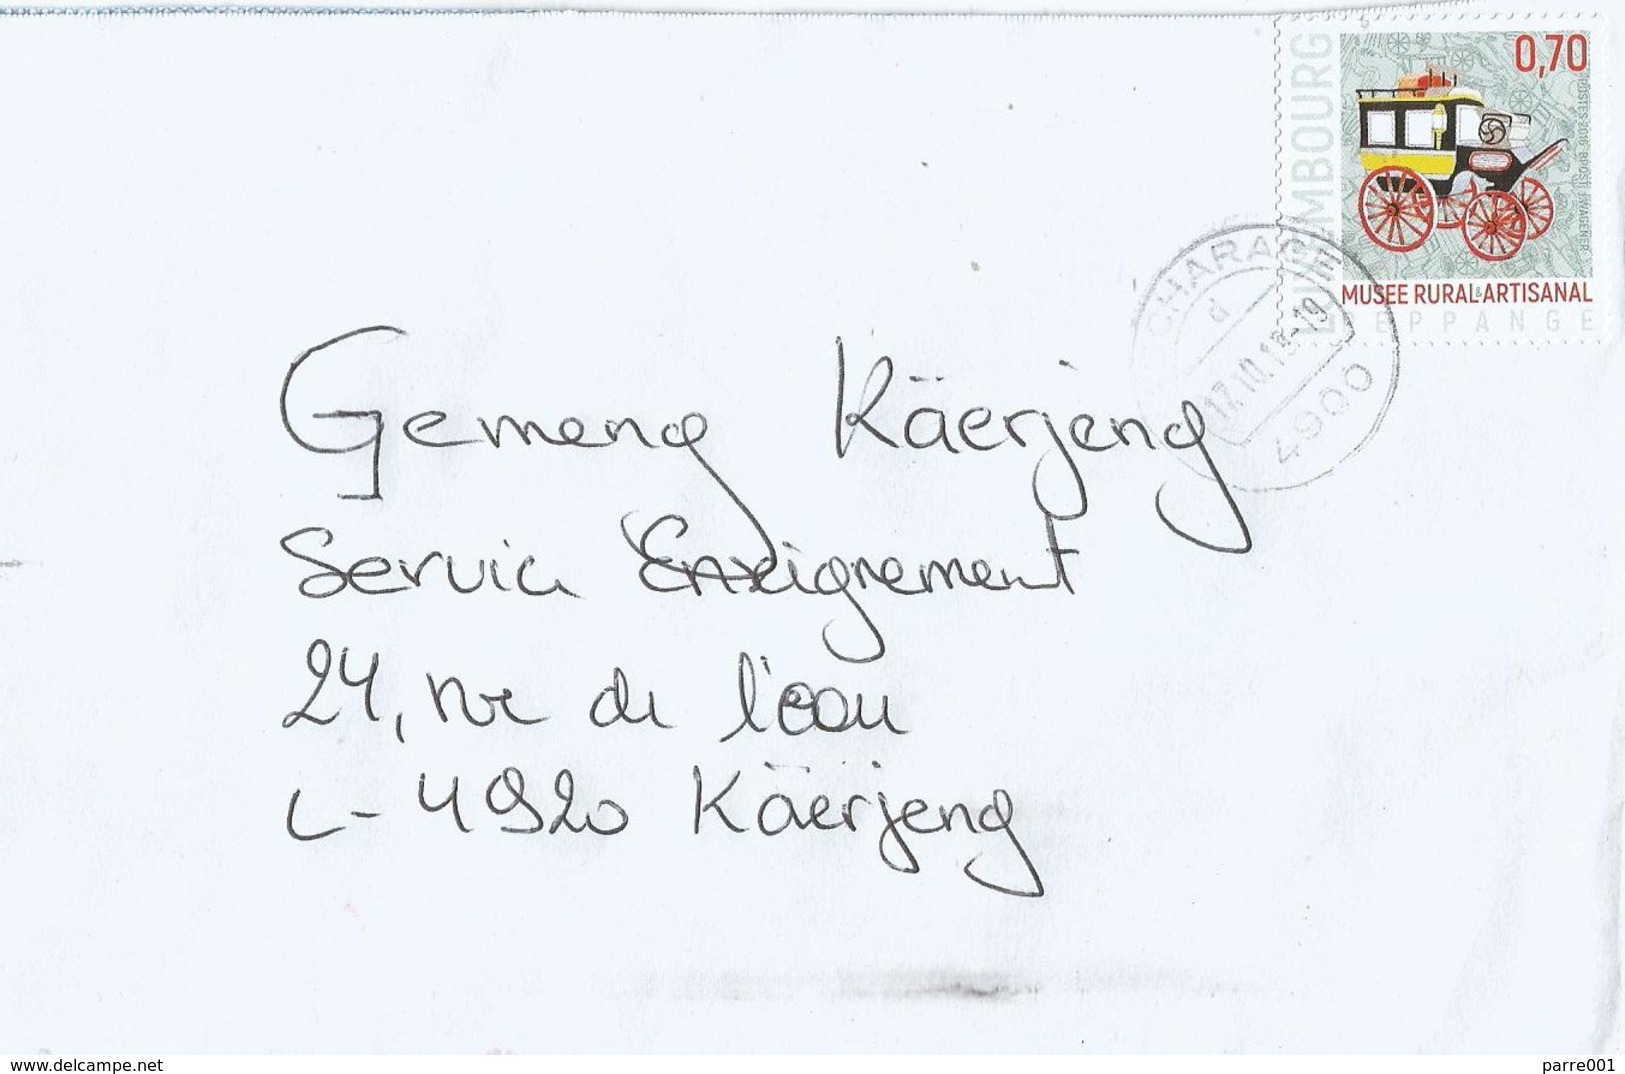 LUXEMBOURG
0,70
POSTES 2016 - BROST / WAGENER
MUSEE RURAL & ARTISANAL
PEPPANGE
d
17.10.18-19
4900
Gemeng Käerjeng
Service Enseignement
24, rue de l'eau
L-4920 Käerjeng
www.delcampe.net
parre001